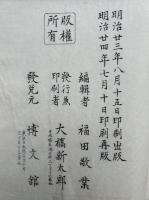 明治廿三年八月十五日印刷出版
明治廿四年七月十日印刷再版
版權
所有
編輯者　福田敬業
發行兼
印刷者　大橋新太郎
發兌元　博文館